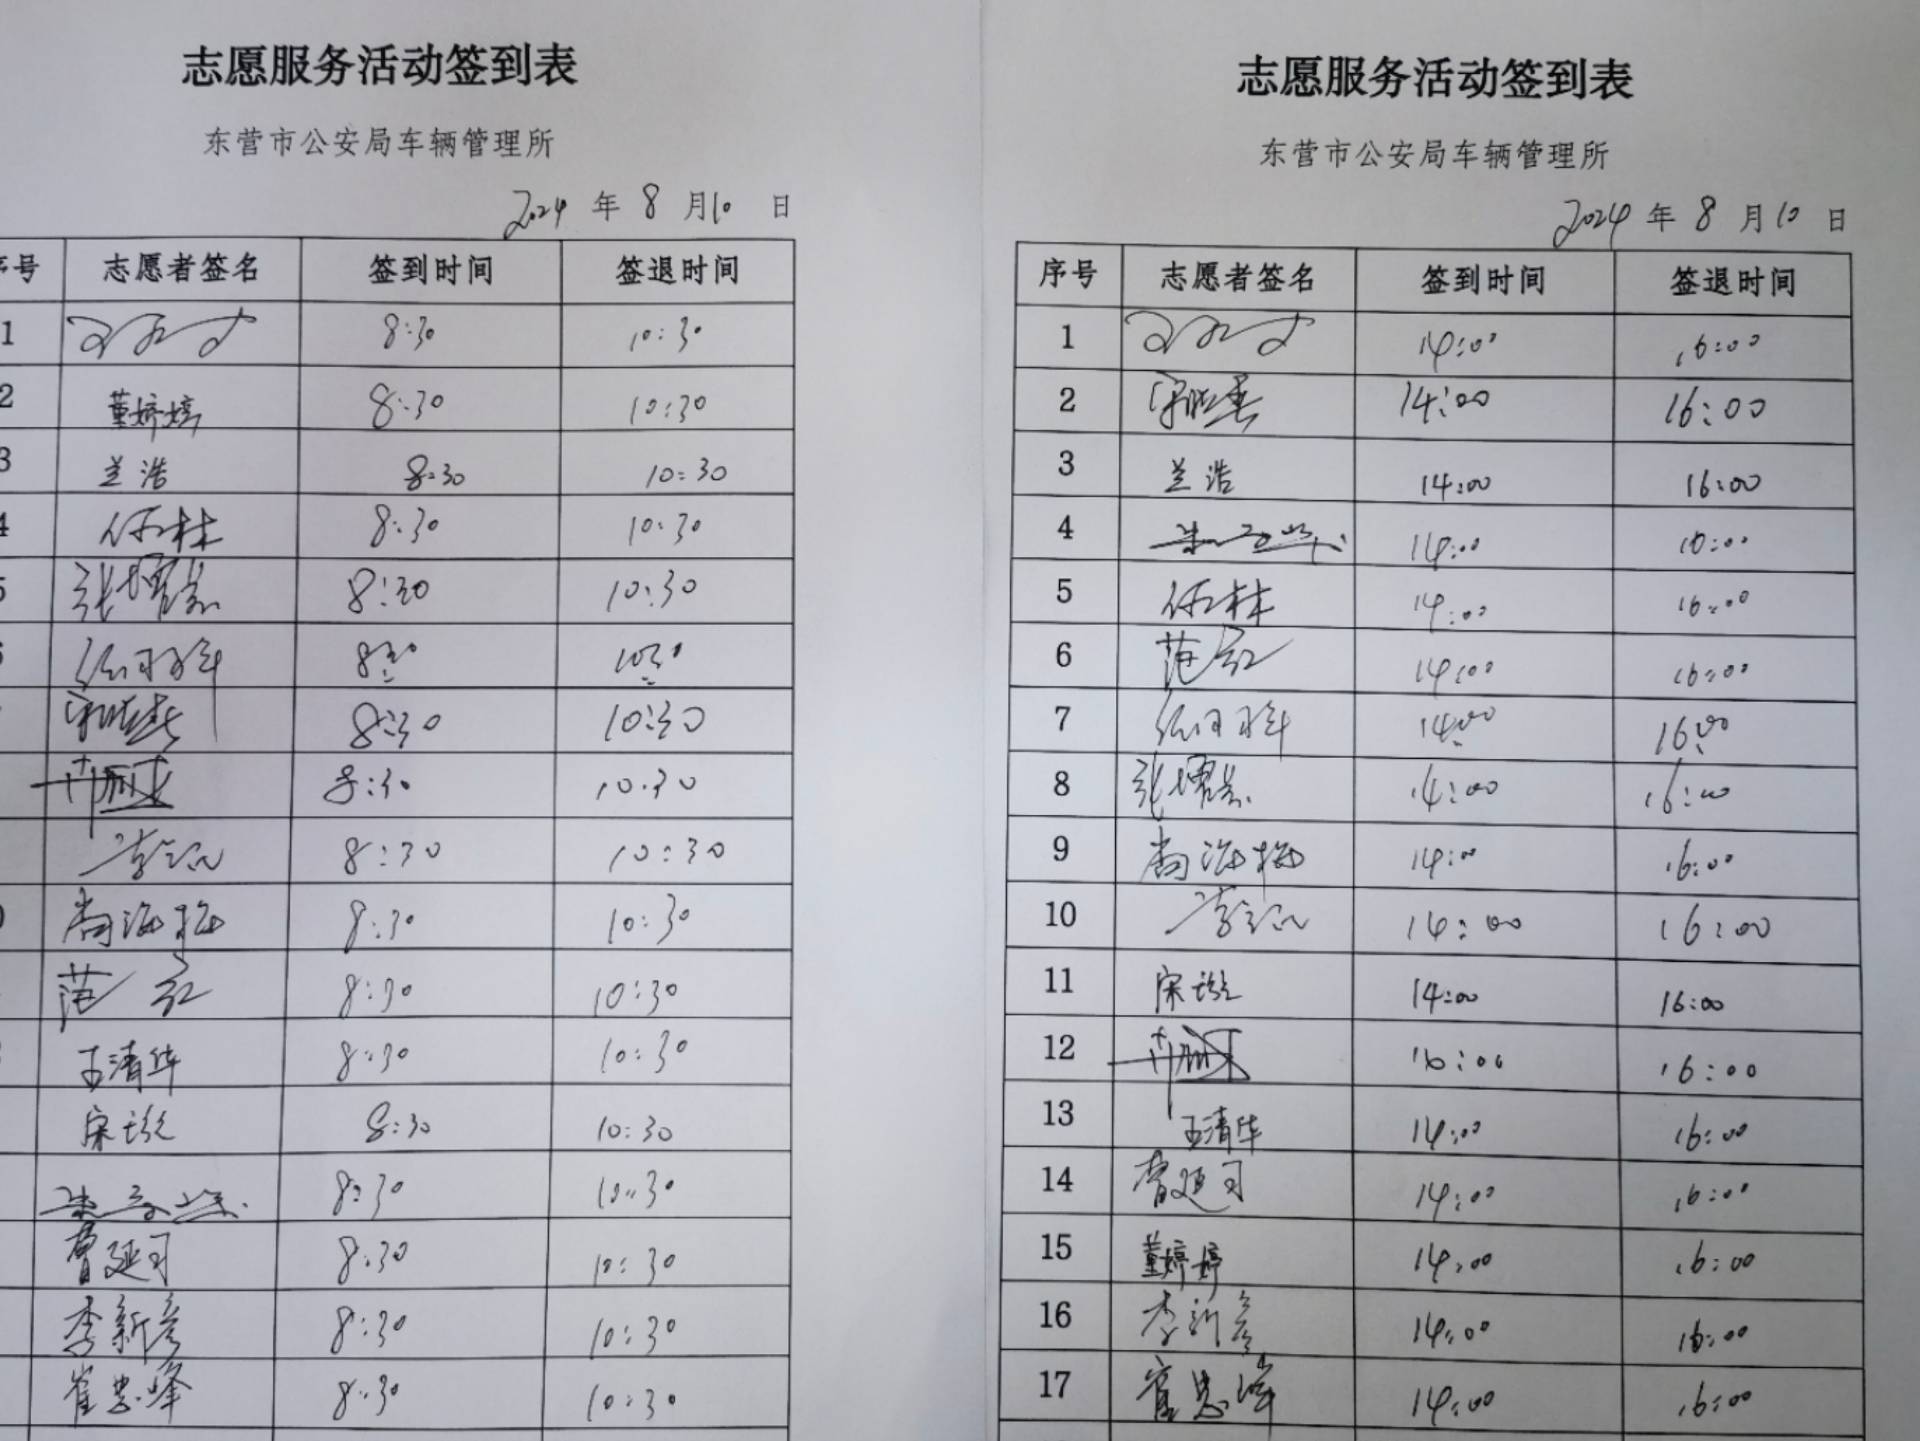 志愿服务活动签到表
东营市公安局车辆管理所
2024 年 8 月 10 日
序号 志愿者签名 签到时间 签退时间
1 8:30 10:30
2 董婷婷 8:30 10:30
3 兰浩 8:30 10:30
4 任林 8:30 10:30
5 8:30 10:30
6 8:30 10:30
8:30 10:30
8:30 10:30
8:30 10:30
尚海梅 8:30 10:30
范红 8:30 10:30
王清华 8:30 10:30
宋璇 8:30 10:30
8:30 10:30
曹延司 8:30 10:30
李新彦 8:30 10:30
崔忠峰 8:30 10:30
志愿服务活动签到表
东营市公安局车辆管理所
2024 年 8 月 10 日
序号 志愿者签名 签到时间 签退时间
1 14:00 16:00
2 14:00 16:00
3 兰浩 14:00 16:00
4 14:00 16:00
5 任林 14:00 16:00
6 范红 14:00 16:00
7 14:00 16:00
8 14:00 16:00
9 尚海梅 14:00 16:00
10 14:00 16:00
11 宋璇 14:00 16:00
12 16:00 16:00
13 王清华 14:00 16:00
14 曹延司 14:00 16:00
15 董婷婷 14:00 16:00
16 李新彦 14:00 16:00
17 崔忠峰 14:00 16:00